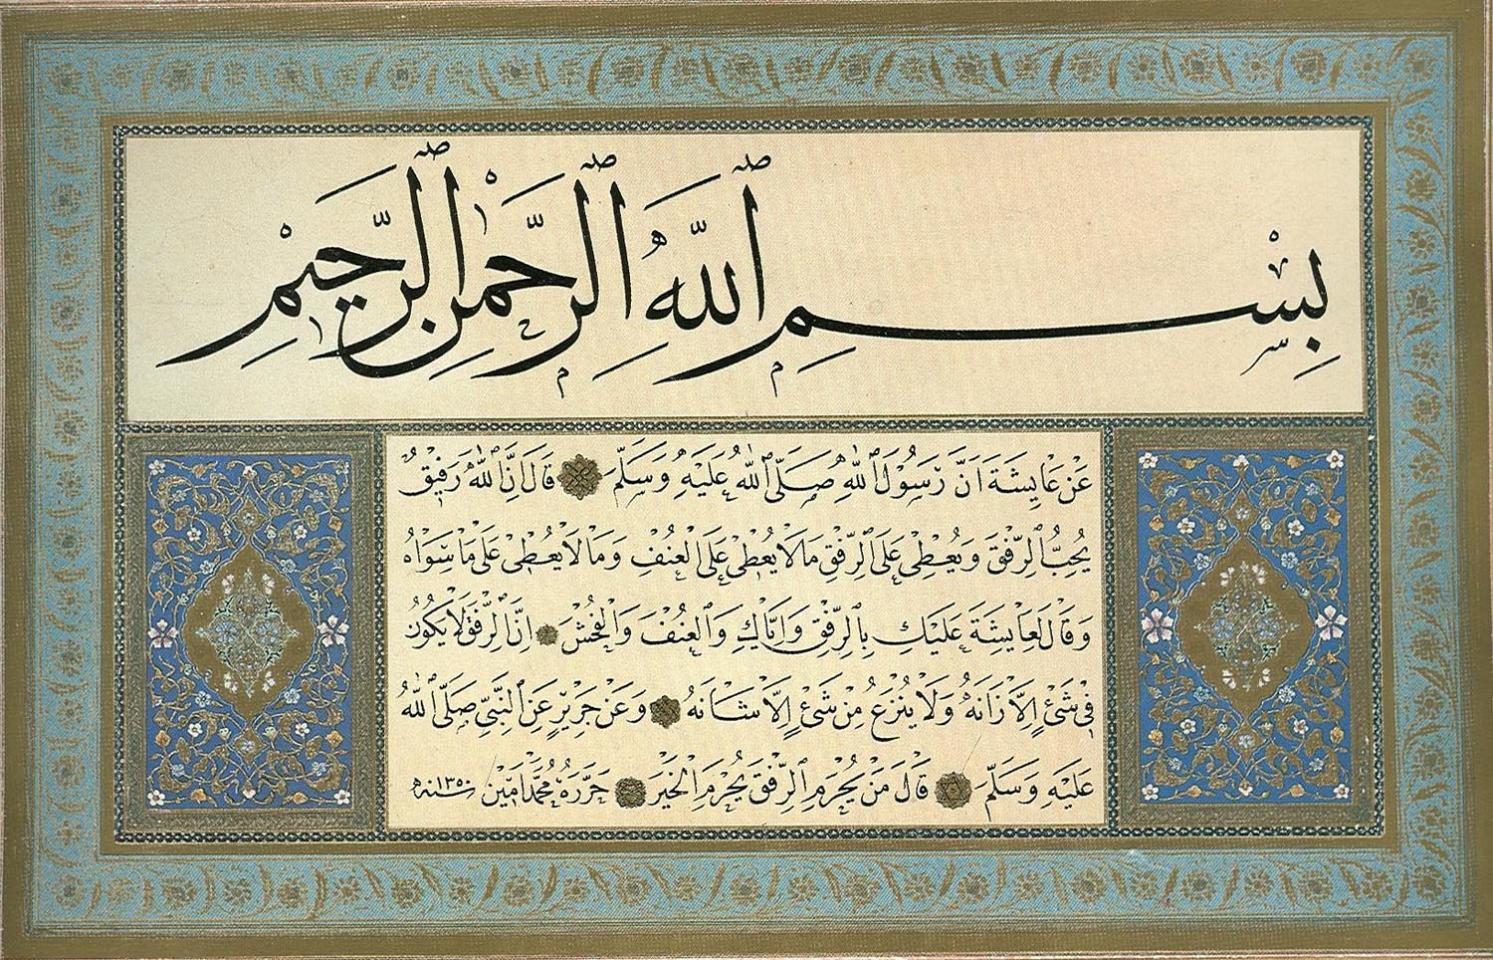 بِسْمِ ٱللّٰهِ ٱلرَّحْمٰنِ ٱلرَّحِيمِ
عَنْ عَايِشَةَ اَنَّ رَسُوْلَ ٱللّٰهِ صَلَّى ٱللّٰهُ عَلَيْهِ وَسَلَّمَ قَالَ اِنَّ ٱللّٰهَ رَفِيْقٌ
يُحِبُّ ٱلرِّفْقَ وَيُعْطِىْ عَلَى ٱلرِّفْقِ مَا لَا يُعْطِىْ عَلَى ٱلْعُنْفِ وَمَا لَا يُعْطِىْ عَلَى مَا سِوَاهُ
وَقَالَ لِعَايِشَةَ عَلَيْكِ بِٱلرِّفْقِ وَاِيَّاكِ وَٱلْعُنْفَ وَٱلْفُحْشَ اِنَّ ٱلرِّفْقَ لَا يَكُوْنُ
فِىْ شَىْءٍ اِلَّا زَانَهُ وَلَا يُنْزَعُ مِنْ شَىْءٍ اِلَّا شَانَهُ وَعَنْ جَرِيْرٍ عَنِ ٱلنَّبِىِّ صَلَّى ٱللّٰهُ
عَلَيْهِ وَسَلَّمَ قَالَ مَنْ يُحْرَمِ ٱلرِّفْقَ يُحْرَمِ ٱلْخَيْرَ حَرَّرَهُ مُحَمَّد اَمِيْن سنه ١٣٥٠ه